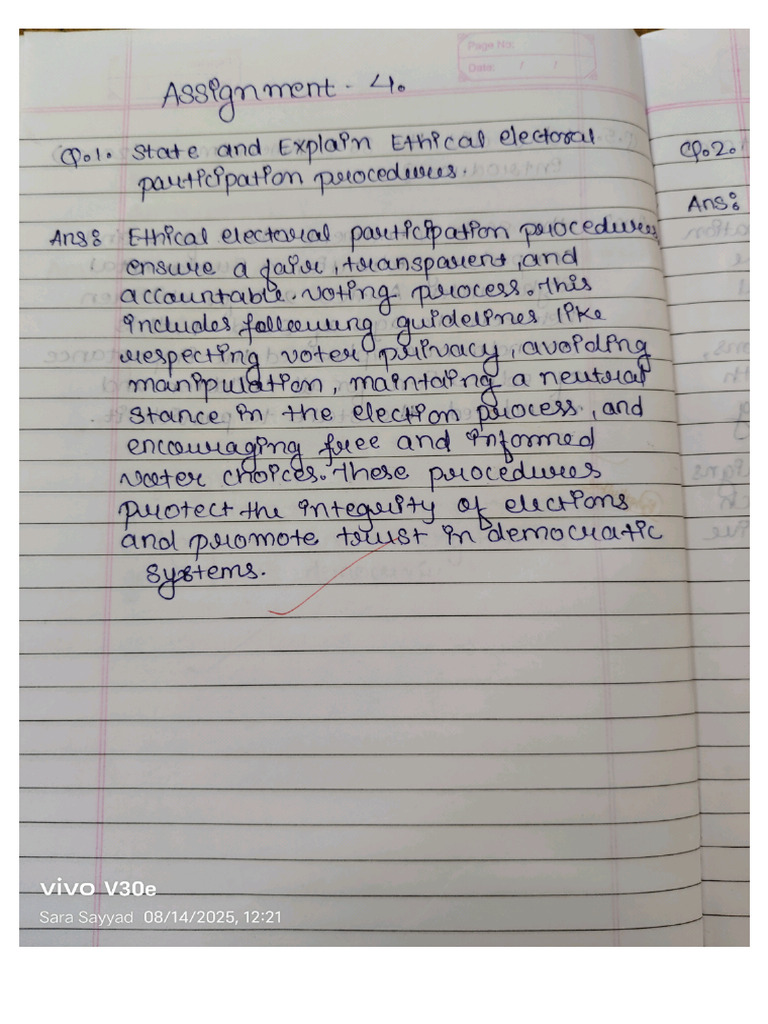 Page No:
Date: / /
Assignment - 4.
Q.1. State and Explain Ethical electoral
participation procedures.
Ans: Ethical electoral participation procedures
ensure a fair, transparent, and
accountable voting process. This
includes following guidelines like
respecting voter privacy, avoiding
manipulation, maintaing a neutral
stance in the election process, and
encouraging free and informed
voter choices. These procedures
protect the integrity of elections
and promote trust in democratic
systems.
Q.2.
Ans:
vivo V30e
Sara Sayyad 08/14/2025, 12:21